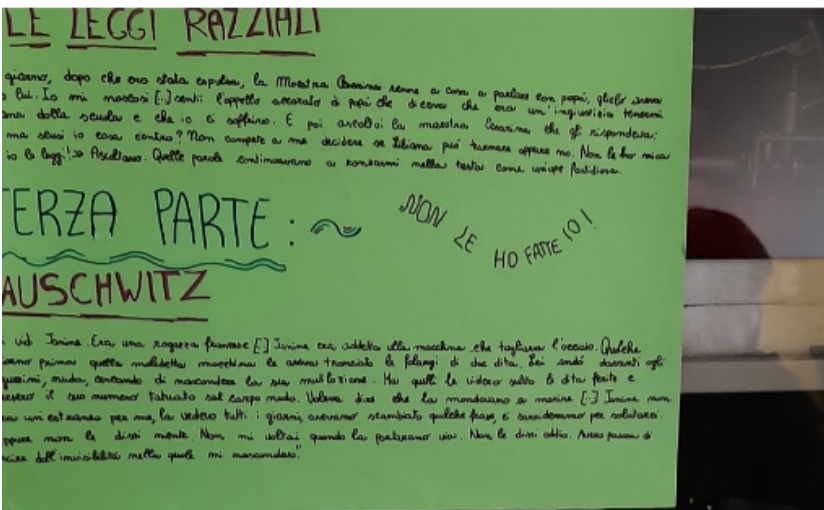 LE LEGGI RAZZIALI
giorno, dopo che ero stata espulsa, la Maestra Cesarina venne a casa a parlare con papà, glielo aveva
lui. Io mi nascosi [.] sentii l'appello accorato di papà che diceva che era un'ingiustizia tenermi
dalla scuola e che io ci soffrivo. E poi ascoltai la maestra Cesarina che gli rispondeva:
ma scusi io cosa c'entro? Non compete a me decidere se Liliana può tornare oppure no. Non le ho mica
io le leggi!» Ascoltavo. Quelle parole continuavano a ronzarmi nella testa come vespe fastidiose.
TERZA PARTE:
NON LE HO FATTE IO!
AUSCHWITZ
vidi Janine. Era una ragazza francese [.] Janine era addetta alla macchina che tagliava l'acciaio. Qualche
giorno prima quella maledetta macchina le aveva tranciato le falangi di due dita. Lei andò davanti agli
nuda, cercando di nascondere la sua mutilazione. Ma quelli le videro subito le dita ferite e
il suo numero tatuato sul corpo nudo. Voleva dire che la mandavano a morire [.] Janine non
un'estranea per me, la vedevo tutti i giorni, avevamo scambiato qualche frase, ci sorridevamo per salutarci.
Eppure non le dissi niente. Non mi voltai quando la portarono via. Non le dissi addio. Avevo paura di
uscire dall'invisibilità nella quale mi nascondevo."